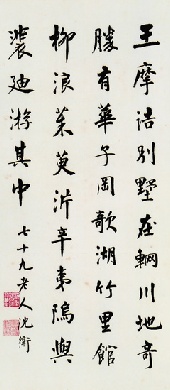 王摩詰別墅在輞川地奇
勝有華子岡欹湖竹里館
柳浪茱萸沜辛夷隖與
裴迪游其中
七十九老人沈衛